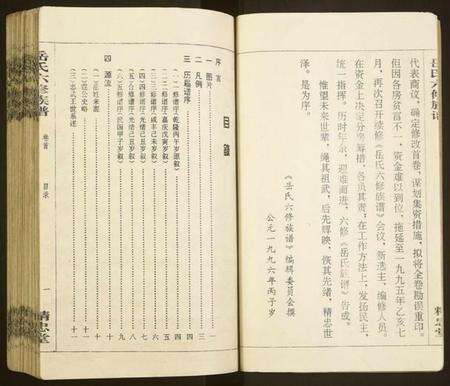 岳氏六修族谱
代表商议，确定修改首卷，谋划集资措施，拟将全卷勘误重印。
但因各房贫富不一，资金难以到位，拖延至一九九五年乙亥七
月，再次召开续修《岳氏六修族谱》会议，新选主、编修人员。
在资金上决定分责筹措，各负其责，在工作方法上，发扬民主，
统一指挥。历时，迎难而进，六修《岳氏族谱》告成。
惟望未来世辈，绳其祖武，后先辉映，恢其先绪，精忠世
泽。是为序。
《岳氏六修族谱》编辑委员会撰
公元一九九六年丙子岁
目录
序言
一 图片
二 凡例 三
三 历届谱序 四
(一)修谱序(乾隆丙午岁原叙) 四
(二)修谱序(嘉庆戊寅岁叙) 五
(三)修谱序(咸丰己未岁叙) 六
(四)修谱序(光绪己丑岁叙) 七
(五)合修谱序(光绪己丑岁叙) 八
(六)五修谱序(民国甲子岁叙) 九
四 源流 十
(一)岳姓来源 十
(二)
(三)忠武王世系述 十一
岳氏六修族谱 卷首 目录 一 精忠堂